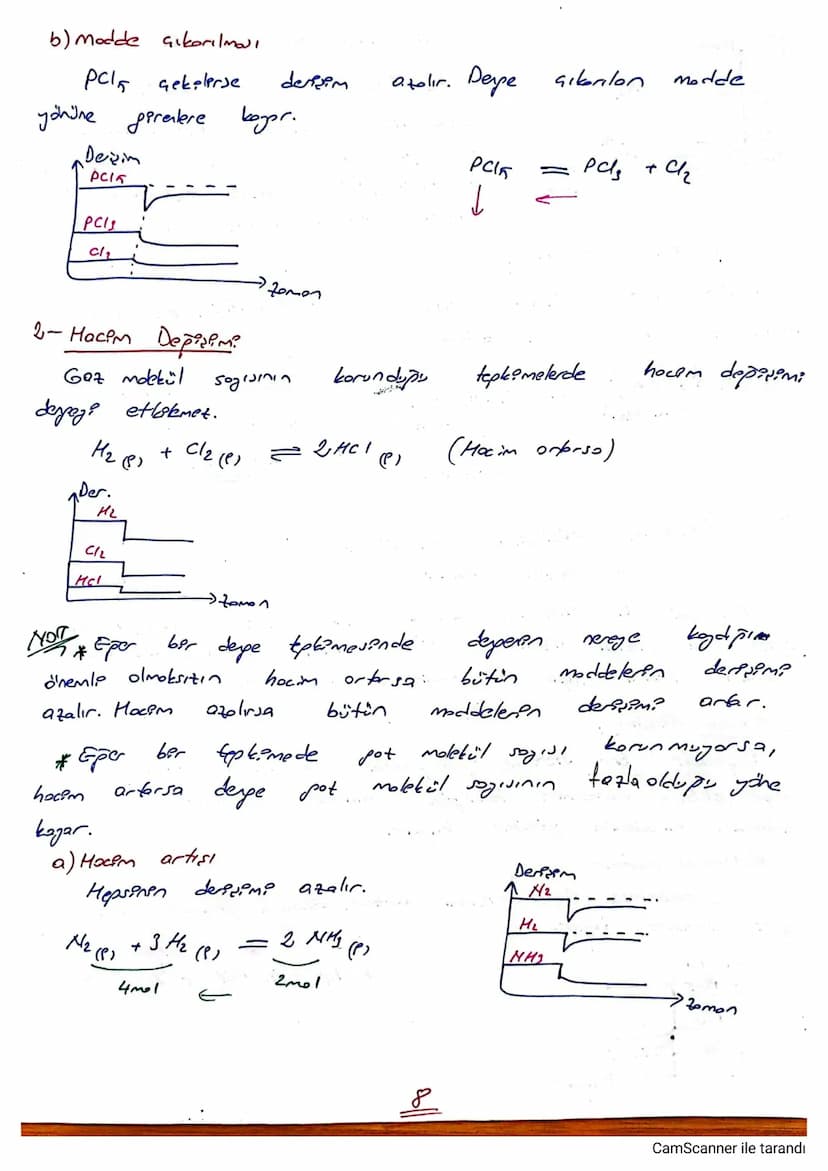 b) Madde çıkarılması
PCl5 çekilirse derişim azalır. Denge çıkarılan madde
yönüne girenlere kayar.
Derişim
PCl5
PCl3
Cl2
zaman
PCl5 = PCl3 + Cl2
↓ ←
2- Hacim Değişimi
Gaz molekül sayısının korunduğu tepkimelerde hacim değişimi
dengeyi etkilemez.
H2 (g) + Cl2 (g) ⇌ 2HCl (g) (Hacim artarsa)
Der.
H2
Cl2
HCl
zaman
NOT * Eğer bir denge tepkimesinde dengenin nereye kaydığının
önemli olmaksızın hacim artarsa bütün maddelerin derişimi
azalır. Hacim azalırsa bütün maddelerin derişimi artar.
* Eğer bir tepkimede gaz molekül sayısı korunmuyorsa,
hacim artarsa denge gaz molekül sayısının fazla olduğu yöne
kayar.
a) Hacim artışı
Hepsinin derişimi azalır.
N2 (g) + 3 H2 (g) = 2 NH3 (g)
4mol ← 2mol
Derişim
N2
H2
NH3
zaman
8
CamScanner ile tarandı